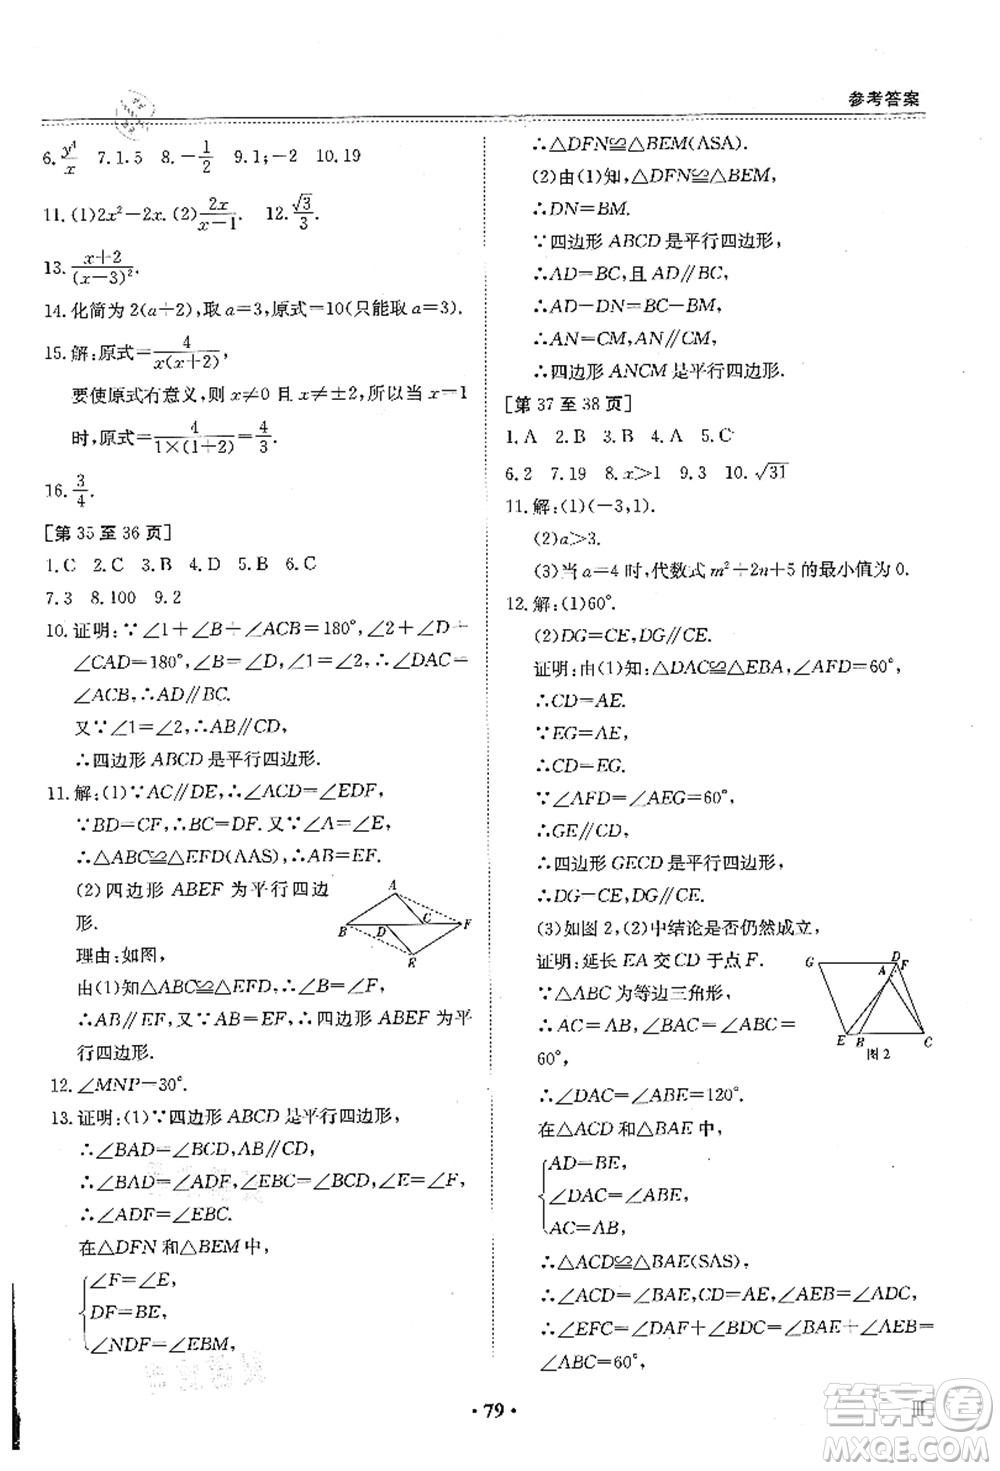 参考答案
6. y⁴/x 7.1.5 8.-1/2 9.1;-2 10.19
11.(1)2x²-2x.(2)2x/(x-1). 12.√3/3
13.(x+2)/(x-3)².
14.化简为2(a+2),取a=3,原式=10(只能取3).
15.解:原式=4/(x(x+2)),
要使原式有意义,则x≠0且x≠±2,所以当x=1
时,原式=4/(1×(1+2))=4/3.
16.3/4.
[第35至36页]
1.C 2.C 3.B 4.D 5.B 6.C
7.3 8.100 9.2
10.证明:∵∠1+∠B+∠ACB=180°,∠2+∠D+
∠CAD=180°,∠B=∠D,∠1=∠2,∴∠DAC=
∠ACB,∴AD∥BC.
又∵∠1=∠2,∴AB∥CD,
∴四边形ABCD是平行四边形.
11.解:(1)∵AC∥DE,∴∠ACD=∠EDF.
∵BD=CF,∴BC=DF.又∵∠A=∠E,
∴△ABC≌△EFD(AAS),∴AB=EF.
(2)四边形ABEF为平行四边
形.
理由:如图,
由(1)知△ABC≌△EFD,∴∠B=∠F,
∴AB∥EF,又∵AB=EF,∴四边形ABEF为平
行四边形.
A
B D C F
E
12.∠MNP=30°.
13.证明:(1)∵四边形ABCD是平行四边形,
∴∠BAD=∠BCD,AB∥CD.
∴∠BAD=∠ADF,∠EBC=∠BCD,
∴∠ADF=∠EBC.
在△DFN和△BEM中,
∠F=∠E,
DF=BE,
∠NDF=∠EBM,
∴△DFN≌△BEM(ASA).
(2)由(1)知,△DFN≌△BEM,
∴DN=BM.
∵四边形ABCD是平行四边形,
∴AD=BC,且AD∥BC,
∴AD-DN=BC-BM,
∴AN=CM,AN∥CM,
∴四边形ANCM是平行四边形.
[第37至38页]
1.A 2.B 3.B 4.A 5.C
6.2 7.19 8.x>1 9.3 10.√31
11.解:(1)(-3,1).
(2)a>3.
(3)当a=4时,代数式m²+2n+5的最小值为0.
12.解:(1)60°.
(2)DG=CE,DG∥CE.
证明:由(1)知:△DAC≌△EBA,∠AFD=60°,
∴CD=AE.
∵EG=AE,
∴CD=EG.
∵∠AFD=∠AEG=60°,
∴GE∥CD,
∴四边形GECD是平行四边形,
∴DG=CE,DG∥CE.
(3)如图2,(2)中结论是否仍然成立,
证明:延长EA交CD于点F.
∵△ABC为等边三角形,
∴AC=AB,∠BAC=∠ABC=
60°,
G A D F
E B C
图2
∴∠DAC=∠ABE=120°.
在△ACD和△BAE中,
AD=BE,
∠DAC=∠ABE,
AC=AB,
∴△ACD≌△BAE(SAS),
∴∠ACD=∠BAE,CD=AE,∠AEB=∠ADC,
∴∠EFC=∠DAF+∠BDC=∠BAE+∠AEB=
∠ABC=60°,
·79·
答案圈
MXQE.COM